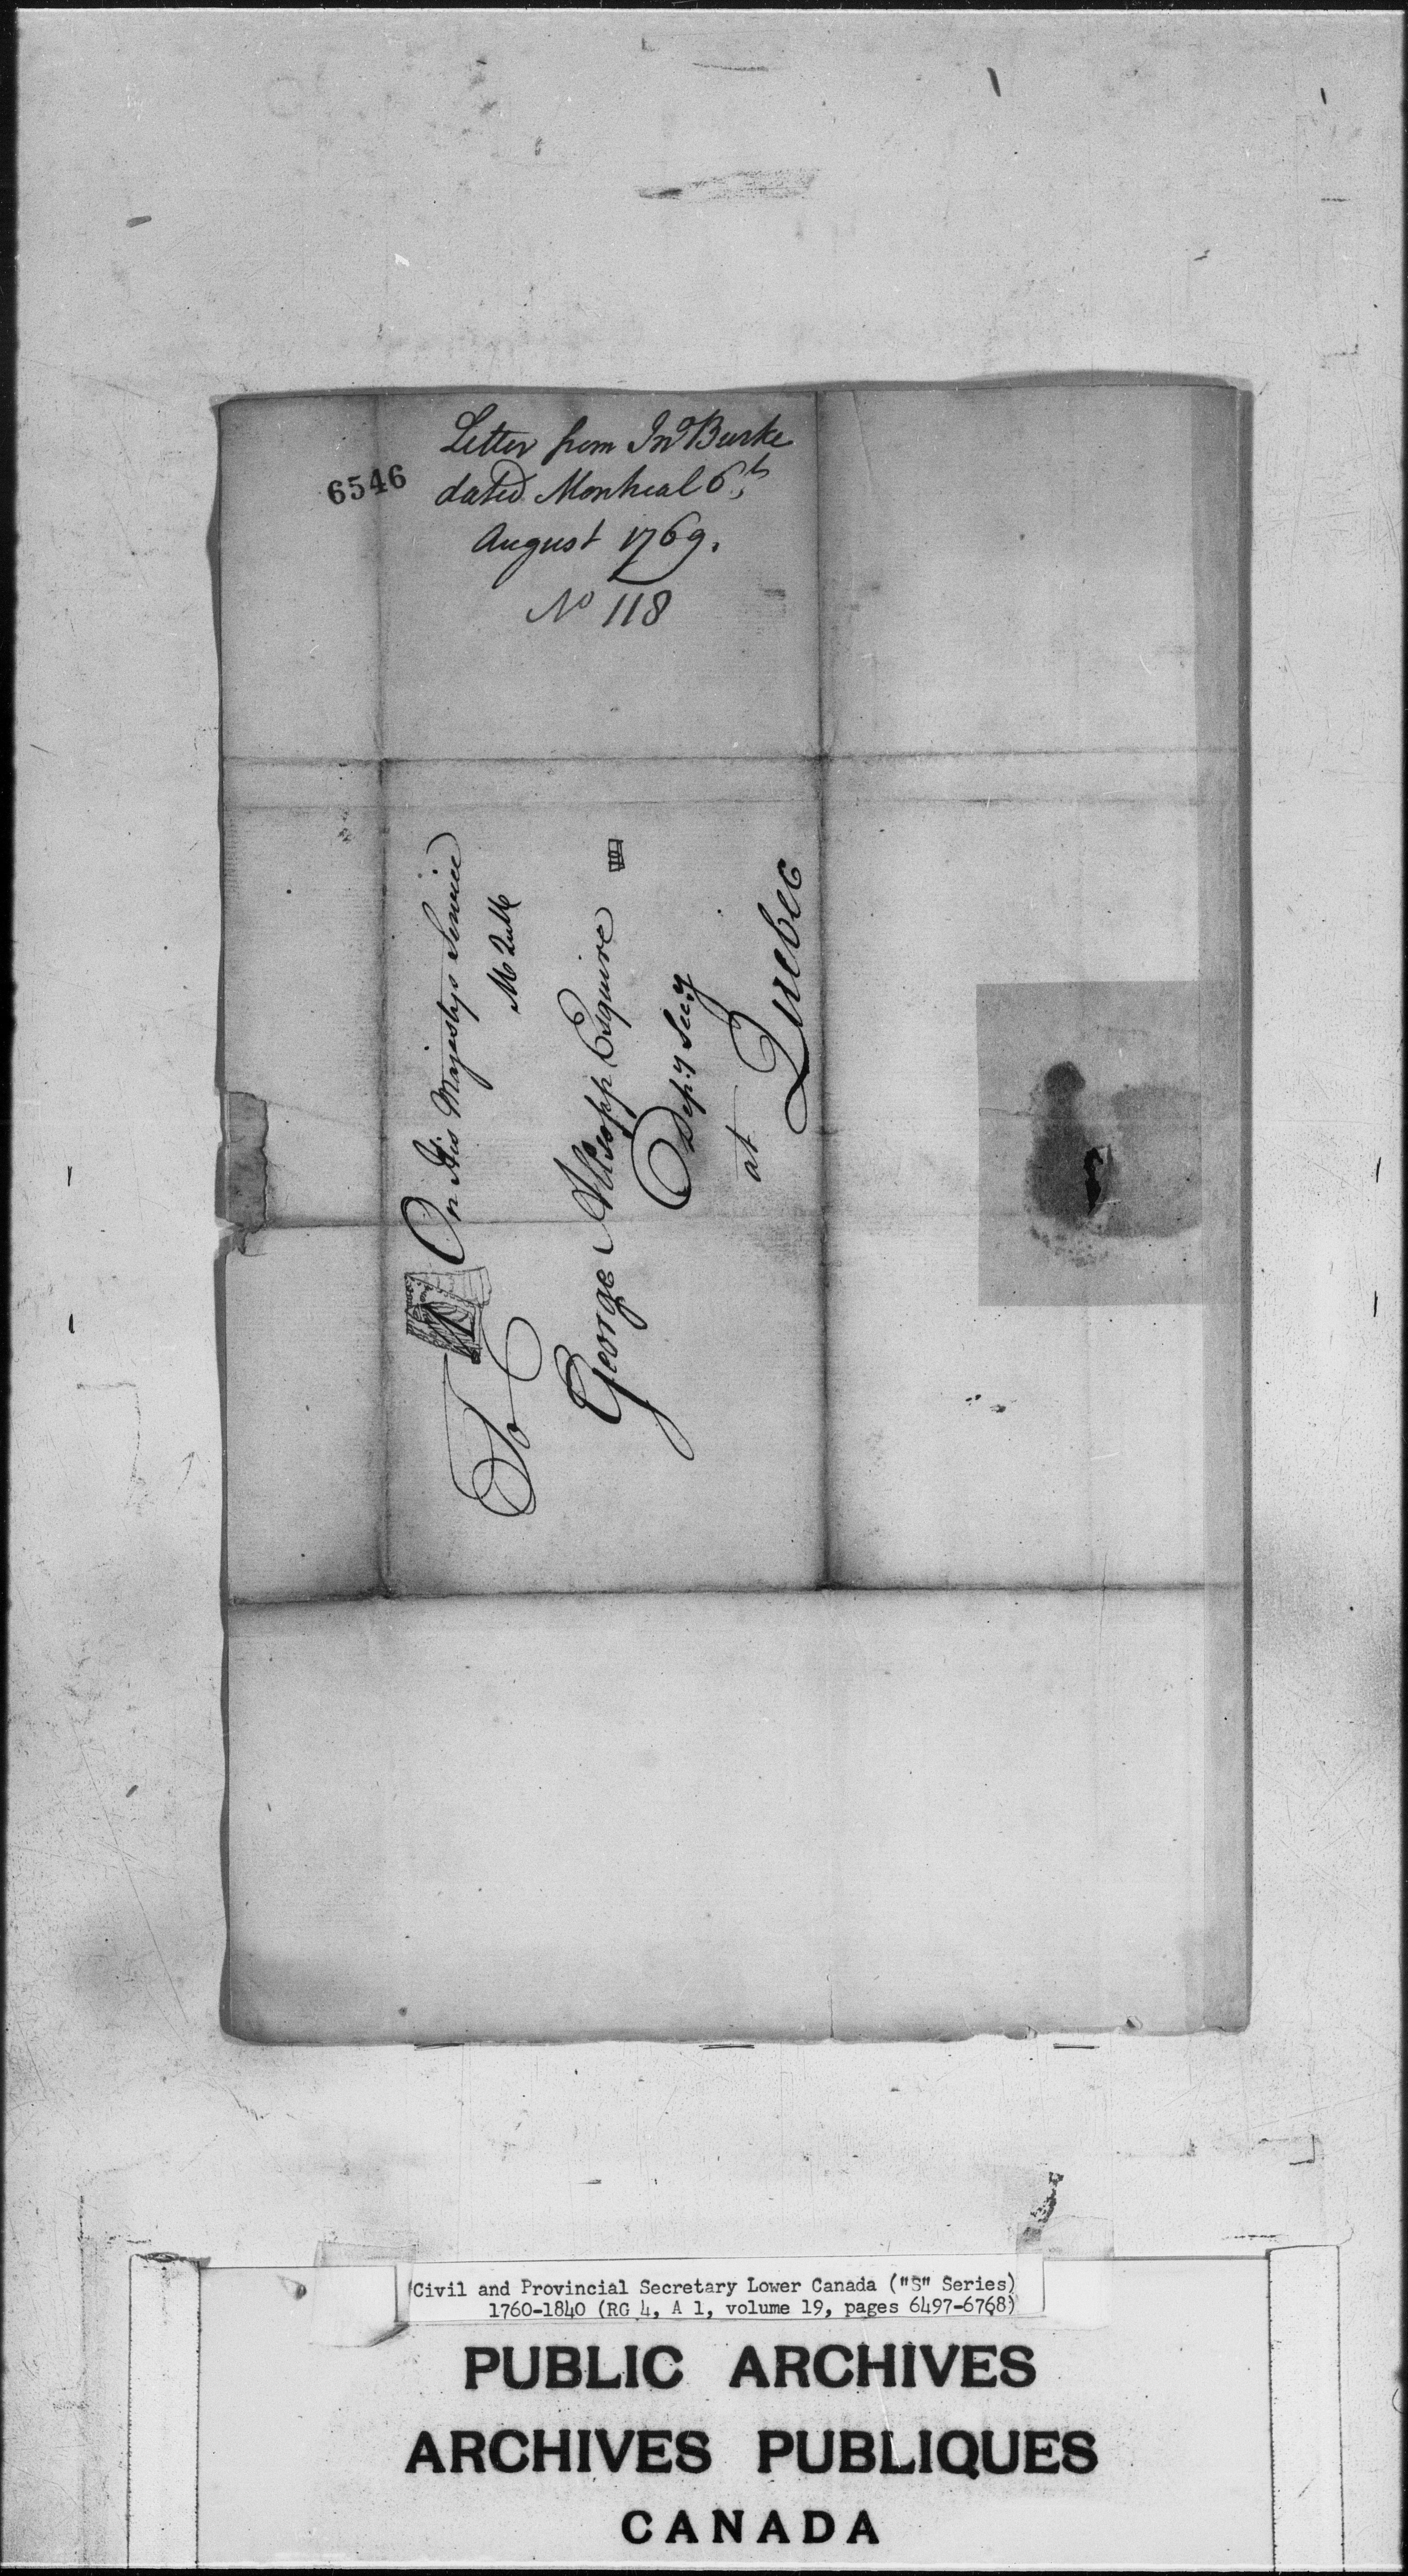 Letter from Jno Burke
6546
dated Montreal 6th
August 1769.
No 118
On His Majestys Service
To
George Allsopp Esquire
Dep.y Sec.y
at
Quebec
Civil and Provincial Secretary Lower Canada ("S" Series)
1760-1840 (RG 4, A 1, volume 19, pages 6497-6768)
PUBLIC ARCHIVES
ARCHIVES PUBLIQUES
CANADA